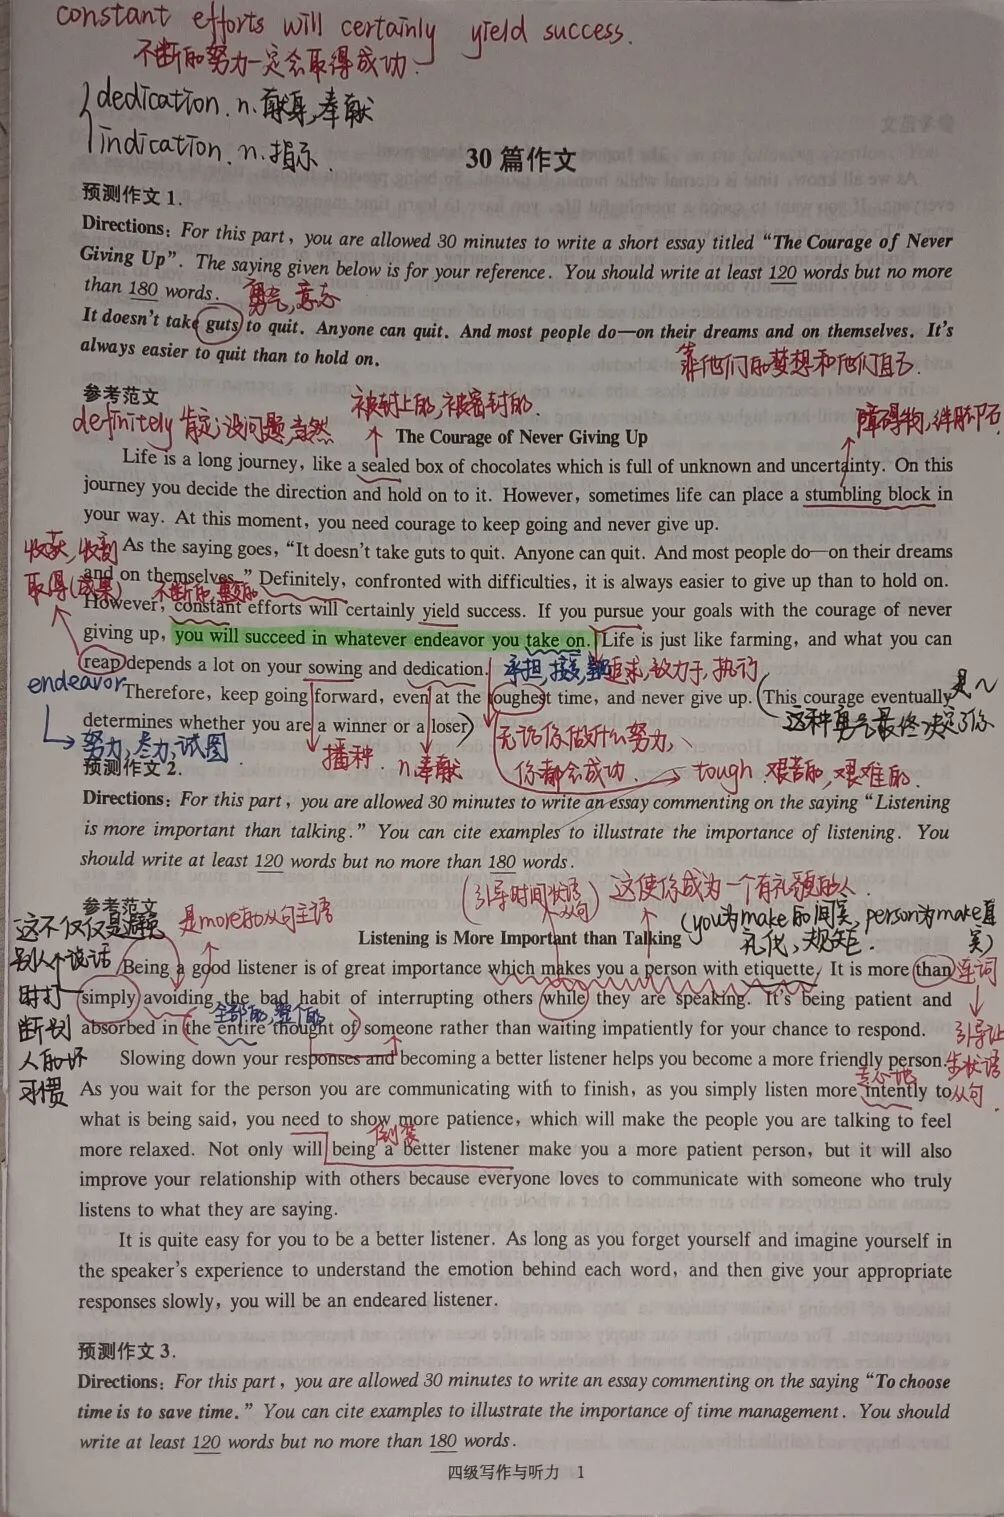 constant efforts will certainly yield success.
不断的努力一定会取得成功.
dedication. n. 献身,奉献
indication. n. 指示.
30 篇作文
预测作文 1.
Directions: For this part, you are allowed 30 minutes to write a short essay titled “The Courage of Never
Giving Up”. The saying given below is for your reference. You should write at least 120 words but no more
than 180 words.
勇气,意志
It doesn't take guts to quit. Anyone can quit. And most people do—on their dreams and on themselves. It's
always easier to quit than to hold on.
靠他们的梦想和他们自己.
参考范文
被封上的,被密封的.
definitely 肯定,没问题,当然
障碍物,绊脚石
The Courage of Never Giving Up
Life is a long journey, like a sealed box of chocolates which is full of unknown and uncertainty. On this
journey you decide the direction and hold on to it. However, sometimes life can place a stumbling block in
your way. At this moment, you need courage to keep going and never give up.
收获,收割
取得(成果)
As the saying goes, “It doesn't take guts to quit. Anyone can quit. And most people do—on their dreams
and on themselves.” Definitely, confronted with difficulties, it is always easier to give up than to hold on.
不断的,重复的
However, constant efforts will certainly yield success. If you pursue your goals with the courage of never
giving up, you will succeed in whatever endeavor you take on. Life is just like farming, and what you can
reap depends a lot on your sowing and dedication.
承担,接受
追求,致力于,执行
endeavor
努力,尽力,试图
Therefore, keep going forward, even at the toughest time, and never give up. This courage eventually
determines whether you are a winner or a loser.
是~
这种勇气最终决定了你
播种
n.奉献
无论你做什么努力、
你都会成功.
tough 艰苦的,艰难的
预测作文 2.
Directions: For this part, you are allowed 30 minutes to write an essay commenting on the saying “Listening
is more important than talking.” You can cite examples to illustrate the importance of listening. You
should write at least 120 words but no more than 180 words.
(引导时间状语从句)
这使你成为一个有礼貌的人.
参考范文
是more的从句主语
(you为make的间宾,person为make直宾)
礼仪,规矩.
这不仅仅是避免
别人个说话
时打
断别
人的坏
习惯
Listening is More Important than Talking
Being a good listener is of great importance which makes you a person with etiquette. It is more than
连词
引导让
步状语
从句.
simply avoiding the bad habit of interrupting others while they are speaking. It's being patient and
全部的,整个的
absorbed in the entire thought of someone rather than waiting impatiently for your chance to respond.
Slowing down your responses and becoming a better listener helps you become a more friendly person.
专心地
As you wait for the person you are communicating with to finish, as you simply listen more intently to
what is being said, you need to show more patience, which will make the people you are talking to feel
倒装
more relaxed. Not only will being a better listener make you a more patient person, but it will also
improve your relationship with others because everyone loves to communicate with someone who truly
listens to what they are saying.
It is quite easy for you to be a better listener. As long as you forget yourself and imagine yourself in
the speaker's experience to understand the emotion behind each word, and then give your appropriate
responses slowly, you will be an endeared listener.
预测作文 3.
Directions: For this part, you are allowed 30 minutes to write an essay commenting on the saying “To choose
time is to save time.” You can cite examples to illustrate the importance of time management. You should
write at least 120 words but no more than 180 words.
四级写作与听力 1